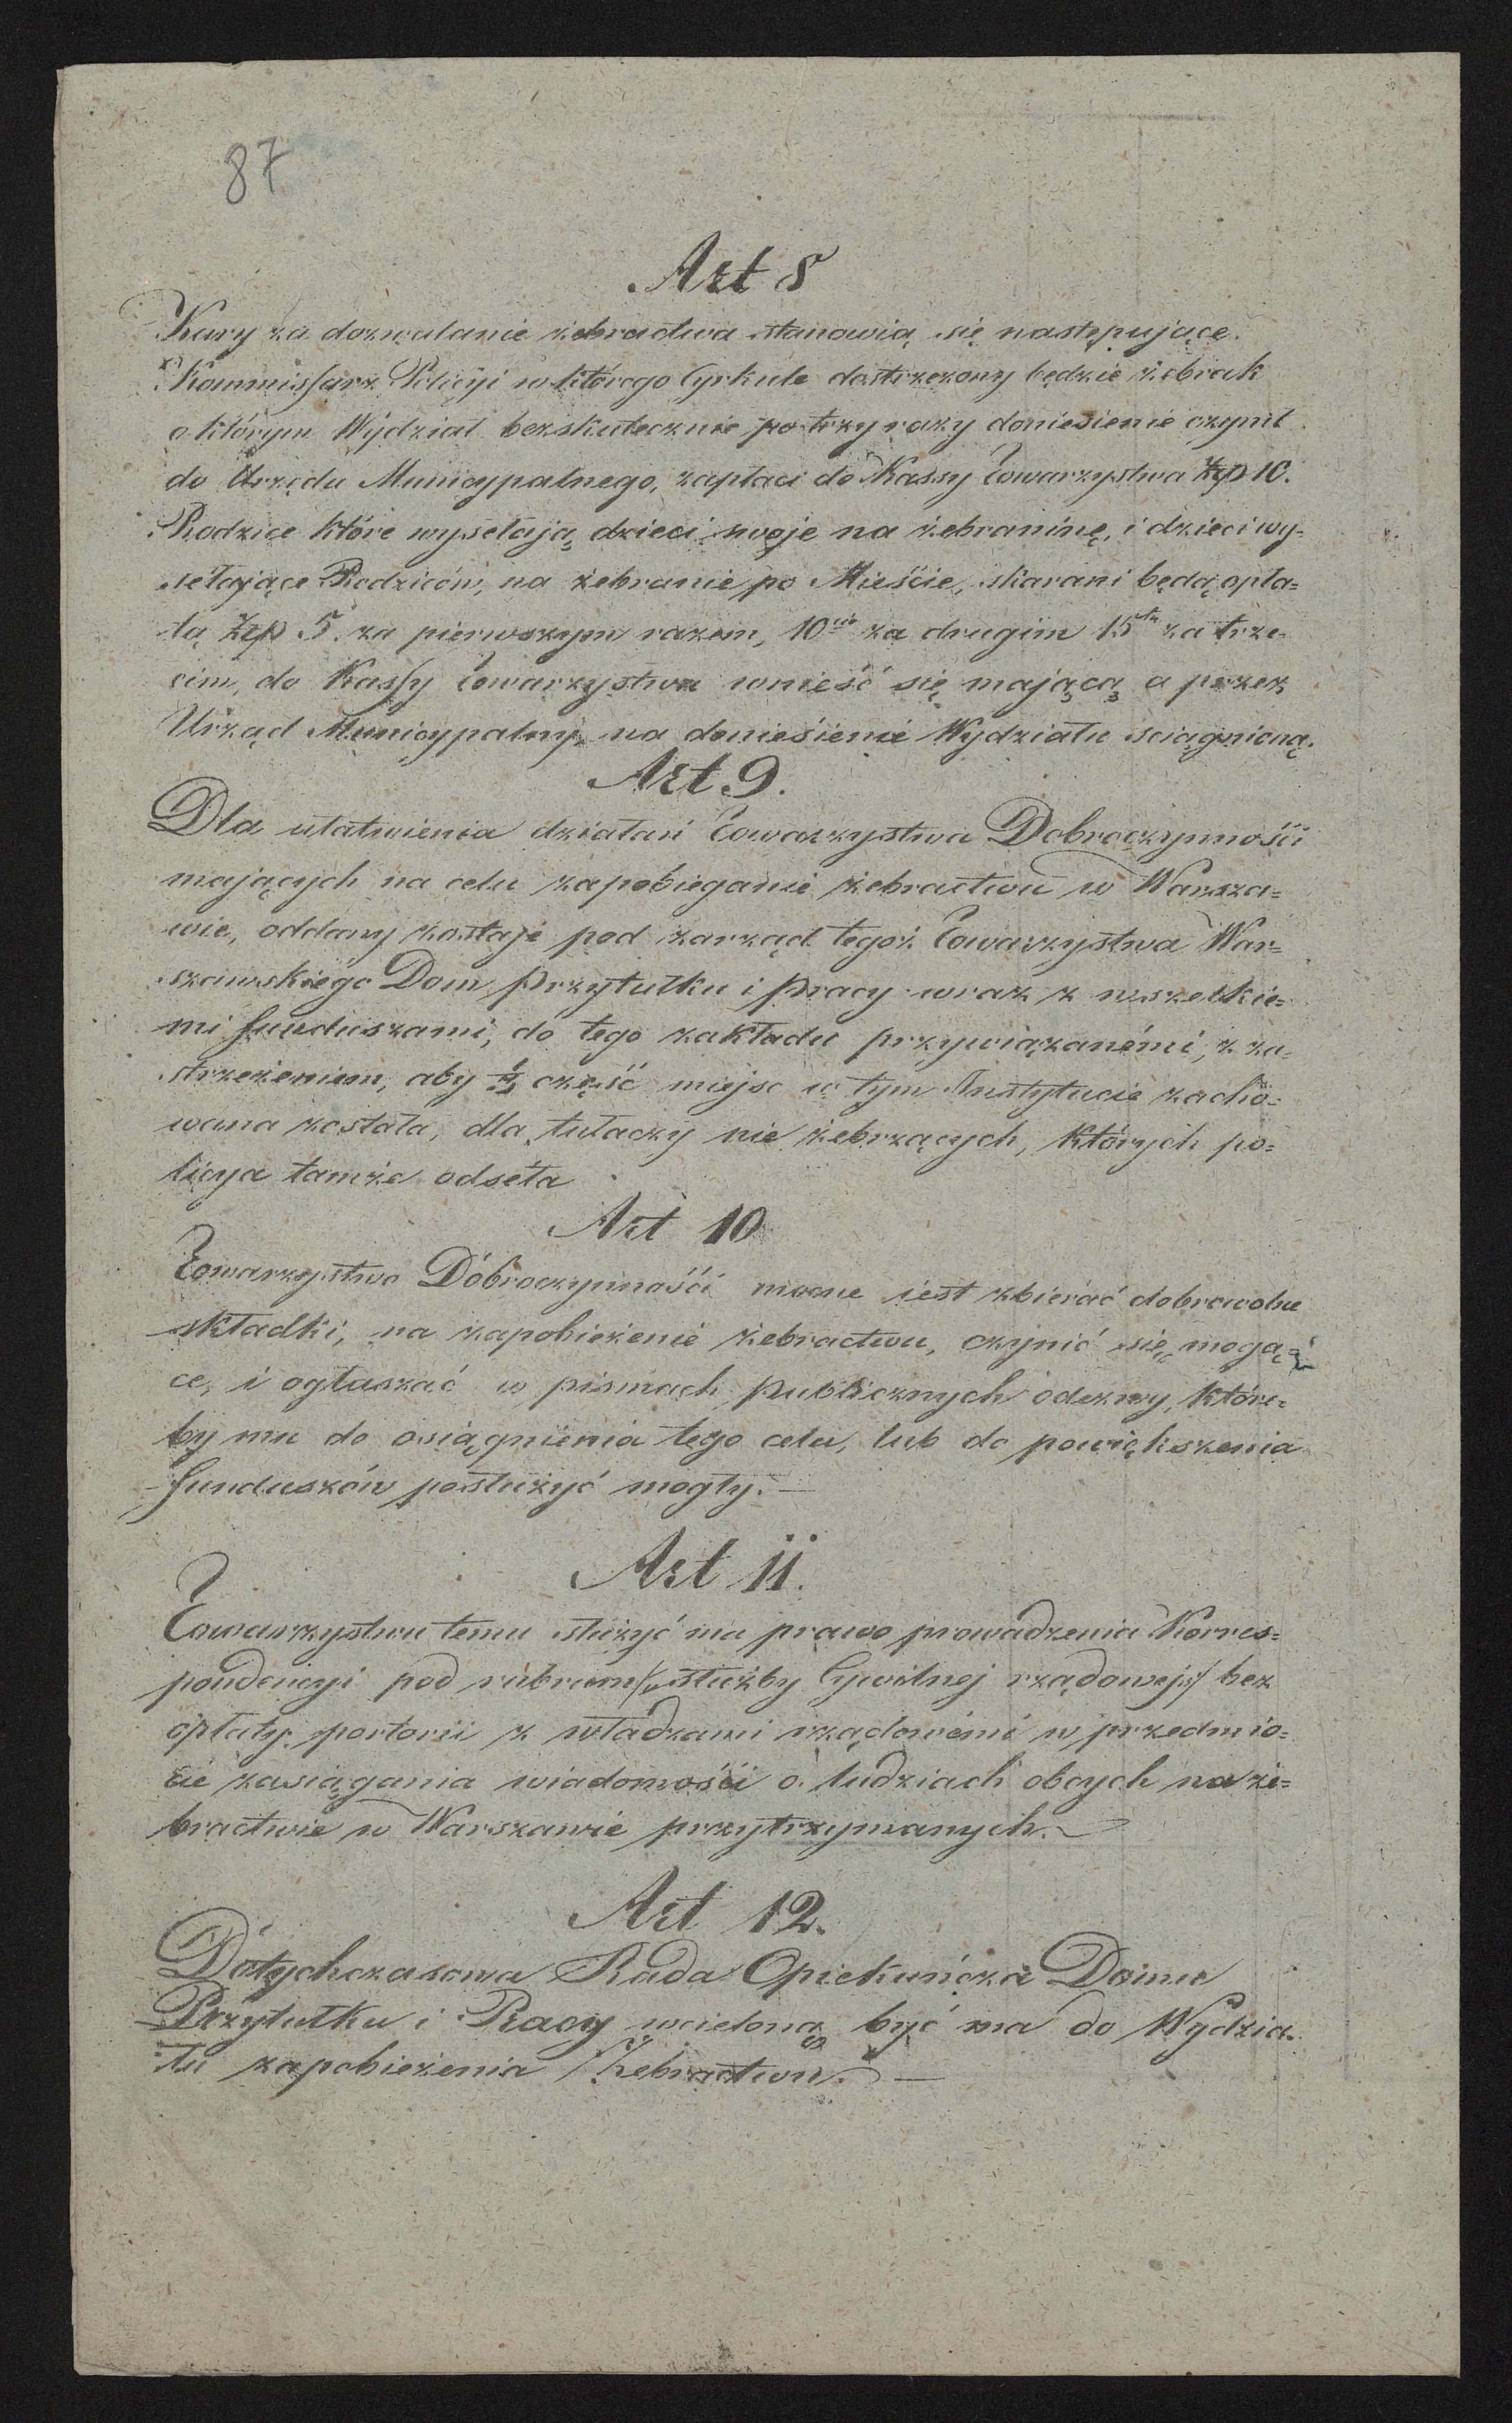 87
Art 8
Kary za dozwalanie żebractwa stanowią się następujące.
Kommissarz Policyi w którego Cyrkule dostrzeżony będzie żebrak
o którym Wydział bezskutecznie po trzy razy doniesienie czynił
do Urzędu Municypalnego, zapłaci do Kassy Towarzystwa Złp 10.
Rodzice które wysełają dzieci swoje na żebraninę, i dzieci wy=
sełające Rodziców, na żebranie po Mieście, skarani będą opła=
tą Złp 5. za pierwszym razem, 10ciu za drugim 15tu za trze=
cim, do Kassy Towarzystwa wnieść się mającą a przez
Urząd Municypalny, na doniesienie Wydziału sciągnioną.
Art 9.
Dla ułatwienia działań Towarzystwa Dobroczynności
mających na celu zapobieganie żebractwu w Warsza=
wie, oddany zostaje pod zarząd tegoż Towarzystwa War=
szawskiego Dom przytułku i pracy wraz z wszelkie=
mi funduszami, do tego zakładu przywiązanémi, z za=
strzeżeniem, aby część miejsc w tym Instytucie zacho=
wana została, dla tułaczy nie żebrzących, których po=
licya tamże odseła
Art 10
Towarzystwo Dobroczynności mocne iest zbierać dobrowolne
składki, na zapobieżenie żebractwu, czynić się mogą=
ce, i ogłaszać w pismach publicznych odezwy, które=
by mu do osiągnienia tego celu, lub do powiększenia
funduszów posłużyć mogły. —
Art 11.
Towarzystwu temu służyć ma prawo prowadzenia Korres=
pondencyi pod rubrum /: służby Cywilnej rządowej :/ bez
opłaty portorii z władzami rządowémi w przedmio=
cie zasiągania wiadomości o ludziach obcych na że=
bractwie w Warszawie przytrzymanych. —
Art 12.
Dotychczasowa Rada Opiekuńcza Domu
Przytułku i Pracy wcieloną być ma do Wydzia=
łu zapobieżenia Żebractwu. —